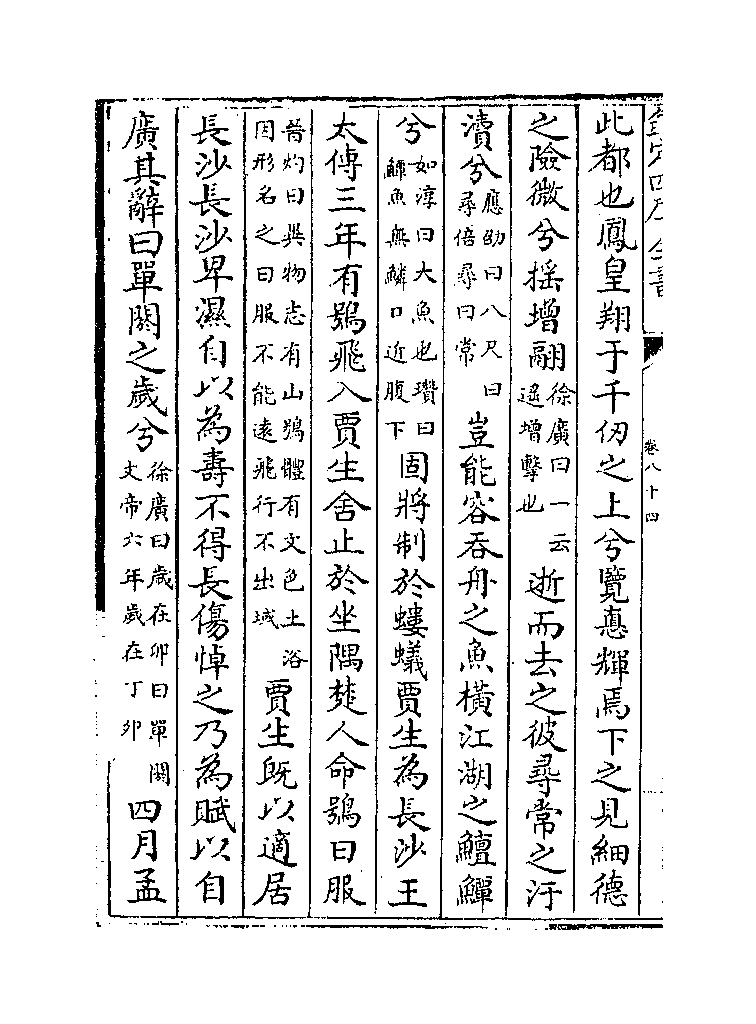 欽定四庫全書
卷八十四
此都也鳳皇翔于千仞之上兮覽悳輝焉下之見細德
之險微兮搖增翮徐廣曰一云遙增擊也逝而去之彼尋常之汙
瀆兮應劭曰八尺曰尋倍尋曰常豈能容吞舟之魚橫江湖之鱣鱓
兮如淳曰大魚也瓚曰鱓魚無鱗口近腹下固將制於螻蟻賈生為長沙王
太傅三年有鴞飛入賈生舍止於坐隅楚人命鴞曰服
晉灼曰異物志有山鴞體有文色土俗因形名之曰服不能遠飛行不出域賈生既以適居
長沙長沙卑濕自以為壽不得長傷悼之乃為賦以自
廣其辭曰單閼之歲兮徐廣曰歲在卯曰單閼文帝六年歲在丁卯四月孟